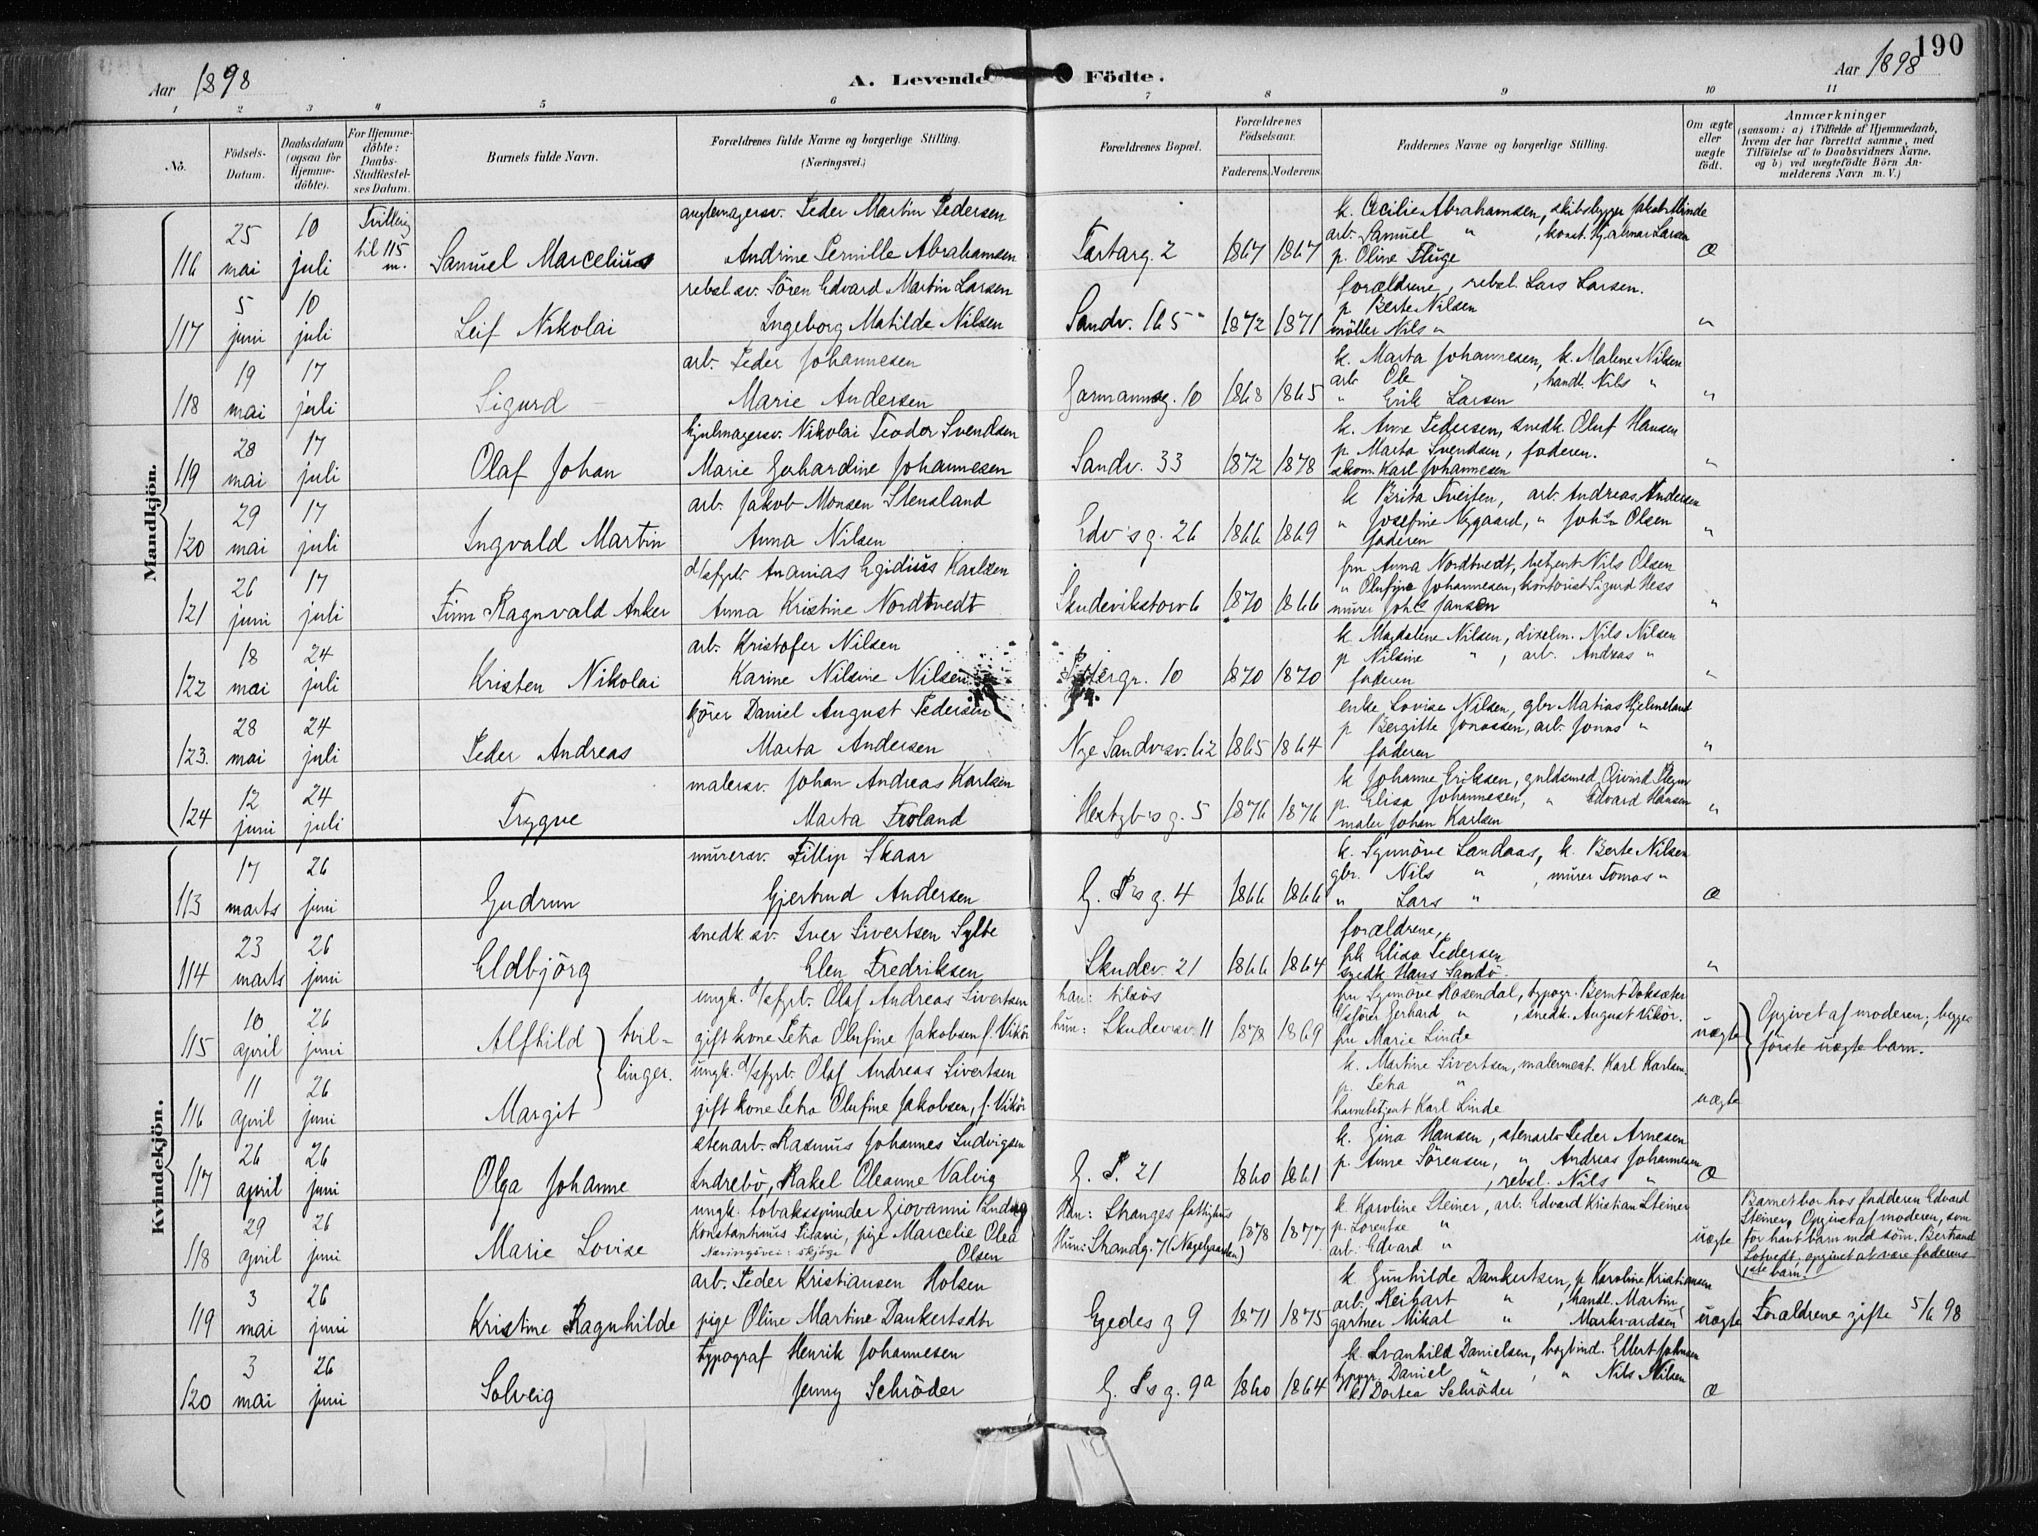 190
Aar 1898
A. Levende Födte.
Aar 1898
1 2 3 4 5 6 7 8 9 10 11
No.
Födsels-Datum.
Daabsdatum (ogsaa for Hjemmedöbte).
For Hjemmedöbte: Daabs-Stadfæstelses Datum.
Barnets fulde Navn.
Forældrenes fulde Navne og borgerlige Stilling. (Næringsvei.)
Forældrenes Bopæl.
Forældrenes Födselsaar.
Faderens. Moderens.
Faddernes Navne og borgerlige Stilling.
Om ægte eller uægte födt.
Anmærkninger
(saasom: a) i Tilfælde af Hjemmedaab, hvem der har forrettet samme, med Tilföielse af to Daabsvidners Navne, og b) ved uægtefödte Börn Anmelderens Navn m. V.)
Mandkjön.
116 25 mai 10 juli Tvilling til 115 m. Samuel Marcelius
Peder Martin Pedersen
Andrine Pernille Abrahamsen
Tartarg. 2 1867 1867
k. Cecilie Abrahamsen, skibsbygger Jakob Minde
arb. Samuel " , konst. Hjalmar Larsen
p. Oline Fluge
æ
117 5 juni 10 juli Leif Nikolai
rebsl.sv. Sören Edvard Martin Larsen
Ingeborg Matilde Nilsen
Sandv. 165 1872 1871
forældrene, rebsl. Lars Larsen.
p Berte Nilsen
möller Nils "
"
118 19 mai 17 juli Sigurd
arb. Peder Johannesen
Marie Andersen
Garmannsg. 10 1868 1865
k. Marta Johannesen, k. Malene Nilsen
arb Ole " , handl. Nils "
" Erik Larsen
"
119 28 mai 17 juli Olaf Johan
hjulmagersv. Nikolai Teodor Svendsen
Marie Gerhardine Johannesen
Sandv. 33 1872 1878
k. Anne Pedersen, snedk. Oluf Hansen
p. Marta Svendsen, faderen.
skom. Karl Johannesen
"
120 29 mai 17 juli Ingvald Martin
arb. Jakob Monsen Stensland
Anna Nilsen
Edv's g. 26 1866 1869
k Brita Tveiten, arb. Andreas Andersen
" Josefine Nygaard, " Johs Olsen
faderen
"
121 26 juni 17 juli Finn Ragnvald Anker
d/sfyrb. Ananias Egidius Karlsen
Anna Kristine Nordtvedt
Skudevikstorv 6 1870 1866
fru Anna Nordtvedt, betjent Nils Olsen
" Olufine Johannesen, kontorist Sigurd Hess
murer Johs Jansen
"
122 18 mai 24 juli Kristen Nikolai
arb. Kristofer Nilsen
Karine Nilsine Nilsen
10 1870 1870
k Magdalene Nilsen, Nils Nilsen
p Nilsine " , arb. Andreas "
faderen
"
123. 28 mai 24 juli Peder Andreas
kjörer Daniel August Pedersen
Marta Andersen
Nye Sandvsv. 62 1865 1864
enke Lovise Nilsen, gbr Matias Hjelmeland
p Bergitte Jonassen, arb. Jonas "
faderen
"
124 12 juni 24 juli Trygve
malersv. Johan Andreas Karlsen
Marta Froland
Hertzb's g. 5 1876 1876
k Johanne Eriksen, guldsmed Öivind
p. Elisa Johannesen, " Edvard Hansen
maler Johan Karlsen
"
Kvindekjön.
113 17 marts 26 juni Gudrun
murersv. Fillip Skaar
Gjertrud Andersen
G. P's g. 4 1866 1866
k. Synnöve Landaas, k. Berte Nilsen
gbr. Nils " , murer Tomas "
" Lars "
æ
114 23 marts 26 juni Eldbjörg
snedk.sv. Iver Sivertsen Sylte
Elen Fredriksen
Skudev. 21 1866 1864
forældrene,
frk Elisa Pedersen
snedk. Hans Sandö
"
115 10 april 26 juni Alfhild tvillinger.
ungk. d/sfyrb. Olaf Andreas Sivertsen
gift kone Petra Olufine Jakobsen f. Vikör
han: tilsös
hun: Skudevsv. 11 1878 1869
fru Synnöve Rosendal, typogr. Bernt Doksæter
Gerhard " , snedk. August Vikör.
fru Marie Linde
uægte
Opgivet af moderen; begges förste uægte barn.
116 11 april 26 juni Margit
ungk. d/sfyrb. Olaf Andreas Sivertsen
gift kone Petra Olufine Jakobsen, f. Vikör
k. Martine Sivertsen, malermest. Karl Karlsen.
p. Petra "
havnebetjent Karl Linde
uægte
117 26 april 26 juni Olga Johanne
stenarb. Rasmus Johannes Ludvigsen
Indrebö, Rakel Oleanne Valvig
G. P. 21 1860 1861
k. Gina Hansen, stenarb Peder Arnesen
p. Anne Sörensen, " Andreas Johannesen
, rebsl. Nils "
æ
118 29 april 26 juni Marie Lovise
ungk. tobaksspinder Giovanni Ludvig
Konstantinus Pisani, pige Marcelie Olea Olsen
Næringsvei: skjöge
Han: Stranges fattighus
Hun: Strandg. 7 (Nagelgaarden) 1878 1877
k. Karoline Steiner, arb. Edvard Kristian Steiner
p. Lorentse "
arb. Edvard "
uægte
Barnet bor hos fadderen Edvard Steiner. Opgivet af moderen, som för havt barn med söm. Bertrand Lotvedt; opgivet at være faderens 1ste barn.
119 3 mai 26 juni Kristine Ragnhilde
arb. Peder Kristiansen Holsen
pige Oline Martine Dankertsdtr
Egedes g 9 1871 1875
k. Gunhilde Dankertsen, p Karoline Kristiansen
arb. Reihart " , handl. Martin
gartner Mikal " Markvardsen
uægte
Forældrene gifte 5/6 98
120 3 mai 26 juni Solveig
typograf Henrik Johannesen
Jenny Schröder
G. P's g. 9a 1860 1864
k. Svanhild Danielsen, bogbind. Ellert Johnsen
typogr. Daniel " , " Nils Nilsen
k Dortea Schröder
æ